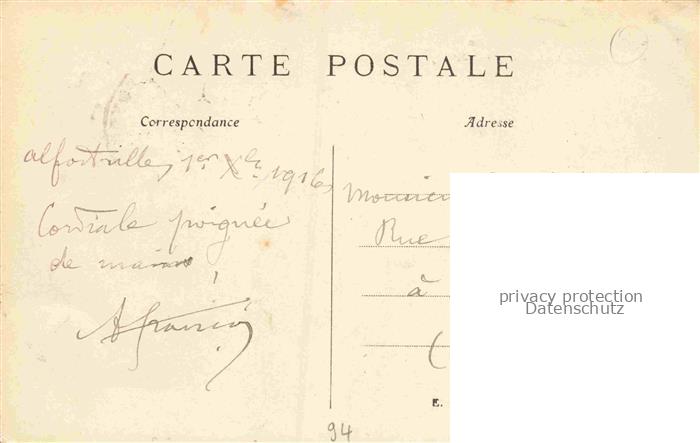 CARTE POSTALE
Correspondance
Adresse
Alfortville, 1er Xbre 1916,
Cordiale poignée
de main,
Monsieur
Rue
à
(
E.
94
privacy protection
Datenschutz